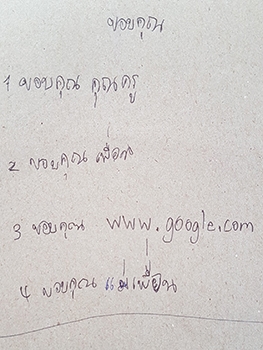 ขอบคุณ
1 ขอบคุณ คุณครู
2 ขอบคุณ เพื่อน
3 ขอบคุณ www.google.com
4 ขอบคุณ แม่เพื่อน